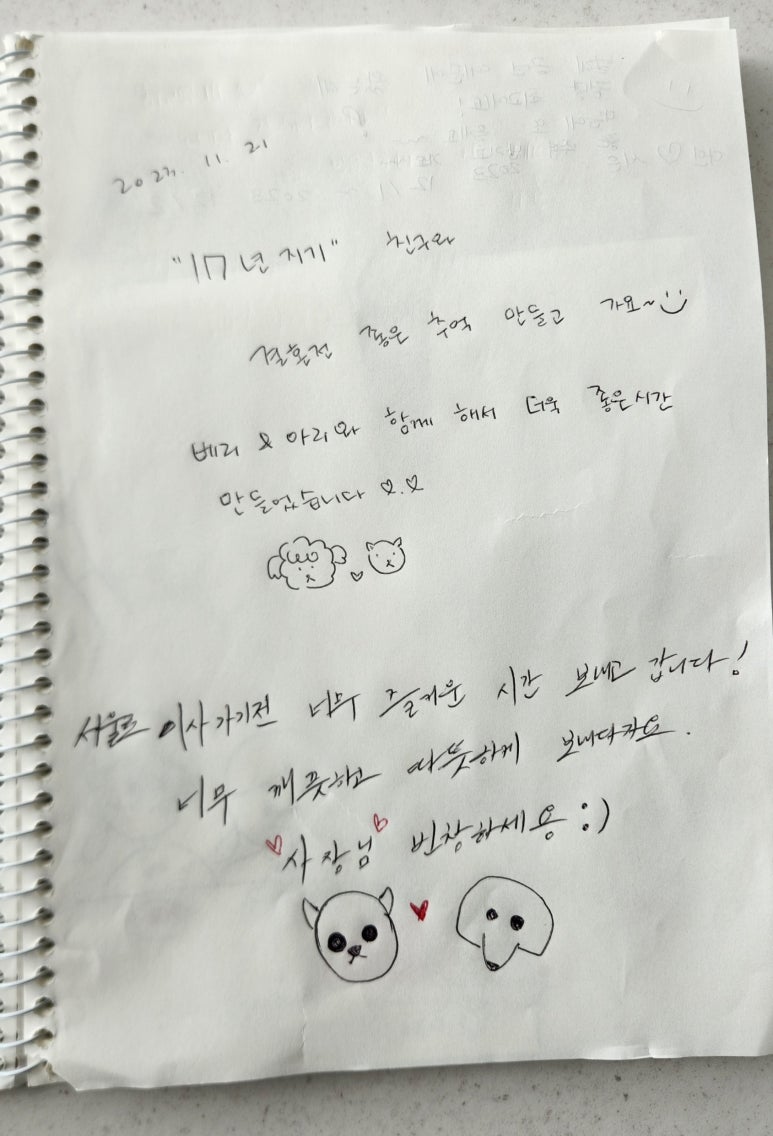 2023. 11. 21
"17년 지기" 친구와
결혼전 좋은 추억 만들고 가요~
베리 & 아리와 함께 해서 더욱 좋은시간
만들었습니다 ♡.♡
♡
서울로 이사가기전 너무 즐거운 시간 보내고 갑니다!
너무 깨끗하고 따뜻하게 보내다가요.
♡사장님♡ 번창하세용 :)
♥